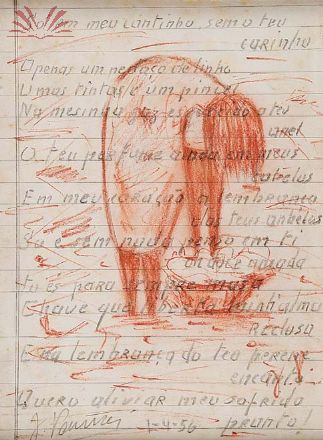 em meu cantinho, sem o teu
carinho
Apenas um pedaço de linho
Umas tintas e um pincel
Na mesinha, esquecido o teu
anel
O teu perfume ainda em meus
cabelos
Em meu coração a lembrança
dos teus anhelos
Só e sem nada penso em ti
amada
Tu és para sempre musa
Chave que minh'alma
Reclusa
E na lembrança do teu perene
encanto
Quero aliviar meu sofrido
pranto!
1-4-56